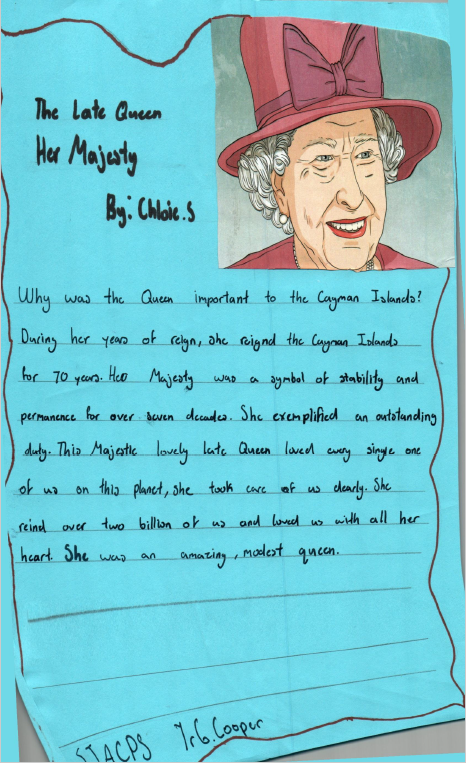 The Late Queen
Her Majesty
By: Chloie.S
Why was the Queen important to the Cayman Islands?
During her years of reign, she reignd the Cayman Islands
for 70 years. Her Majesty was a symbol of stability and
permanence for over seven decades. She exemplified an outstanding
duty. This Majestic lovely late Queen loved every single one
of us on this planet, she took care of us dearly. She
reind over two billion of us and loved us with all her
heart. She was an amazing, modest queen.
STACPS Yr6.Cooper